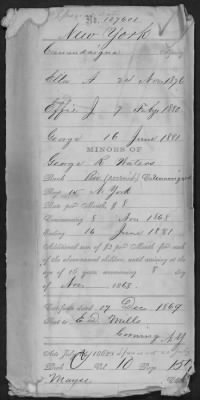 No. 107601
New York
Canandaigua Agency
Ella A 24 Nov 1876
Effie J 7 Feby 1880
George 16 June 1881
MINORS OF
George R Waters
Rank
Reg 15 N York
Rate per Month, $ 8
Commencing 8 Nov 1868
Ending 16 June 1881
Additional sum of $2 per Month for each
of the above-named children, until arriving at the
age of 16 years, commencing 8 day
of Nov 1868
Certificate dated 17 Dec 1869
Sent to E. D. Mills
Corning N.Y.
Act July
Book C Vol 10 Page 157